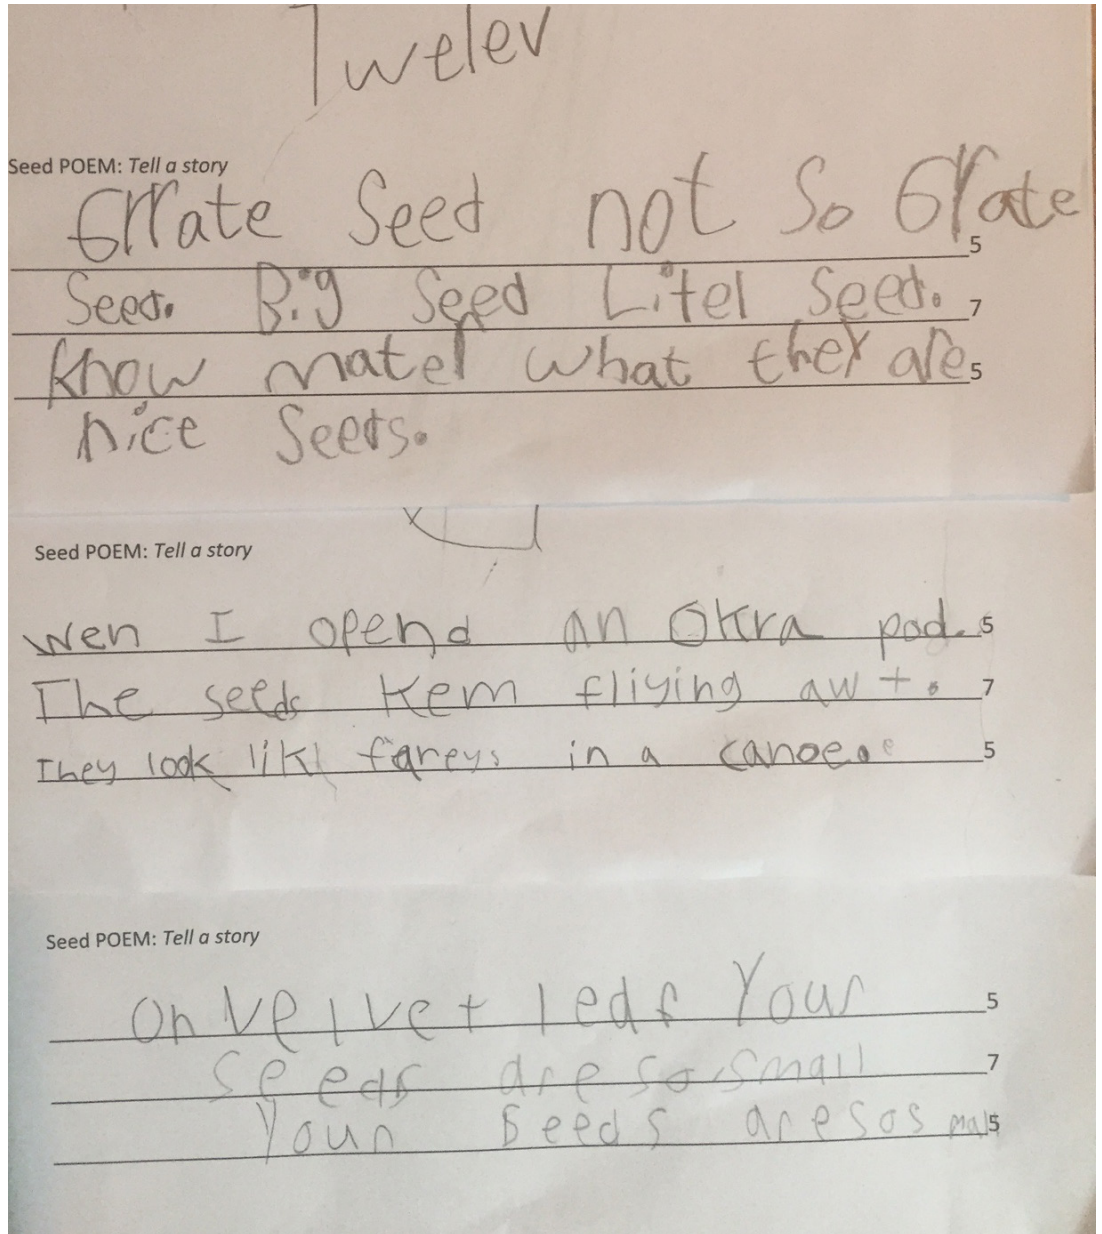 Twelev
Seed POEM: Tell a story
Grrate Seed not So Grate
5
Seed. Big Seed Litel Seed. 7
Know matel what they are 5
nice Seeds.
Seed POEM: Tell a story
Wen I opend an Okra pod. 5
The seeds Kem fliying awt. 7
They look like fareys in a canoe. 5
Seed POEM: Tell a story
On Velvet leaf Your 5
Seeds are so small 7
Your Seeds are so s mall 5